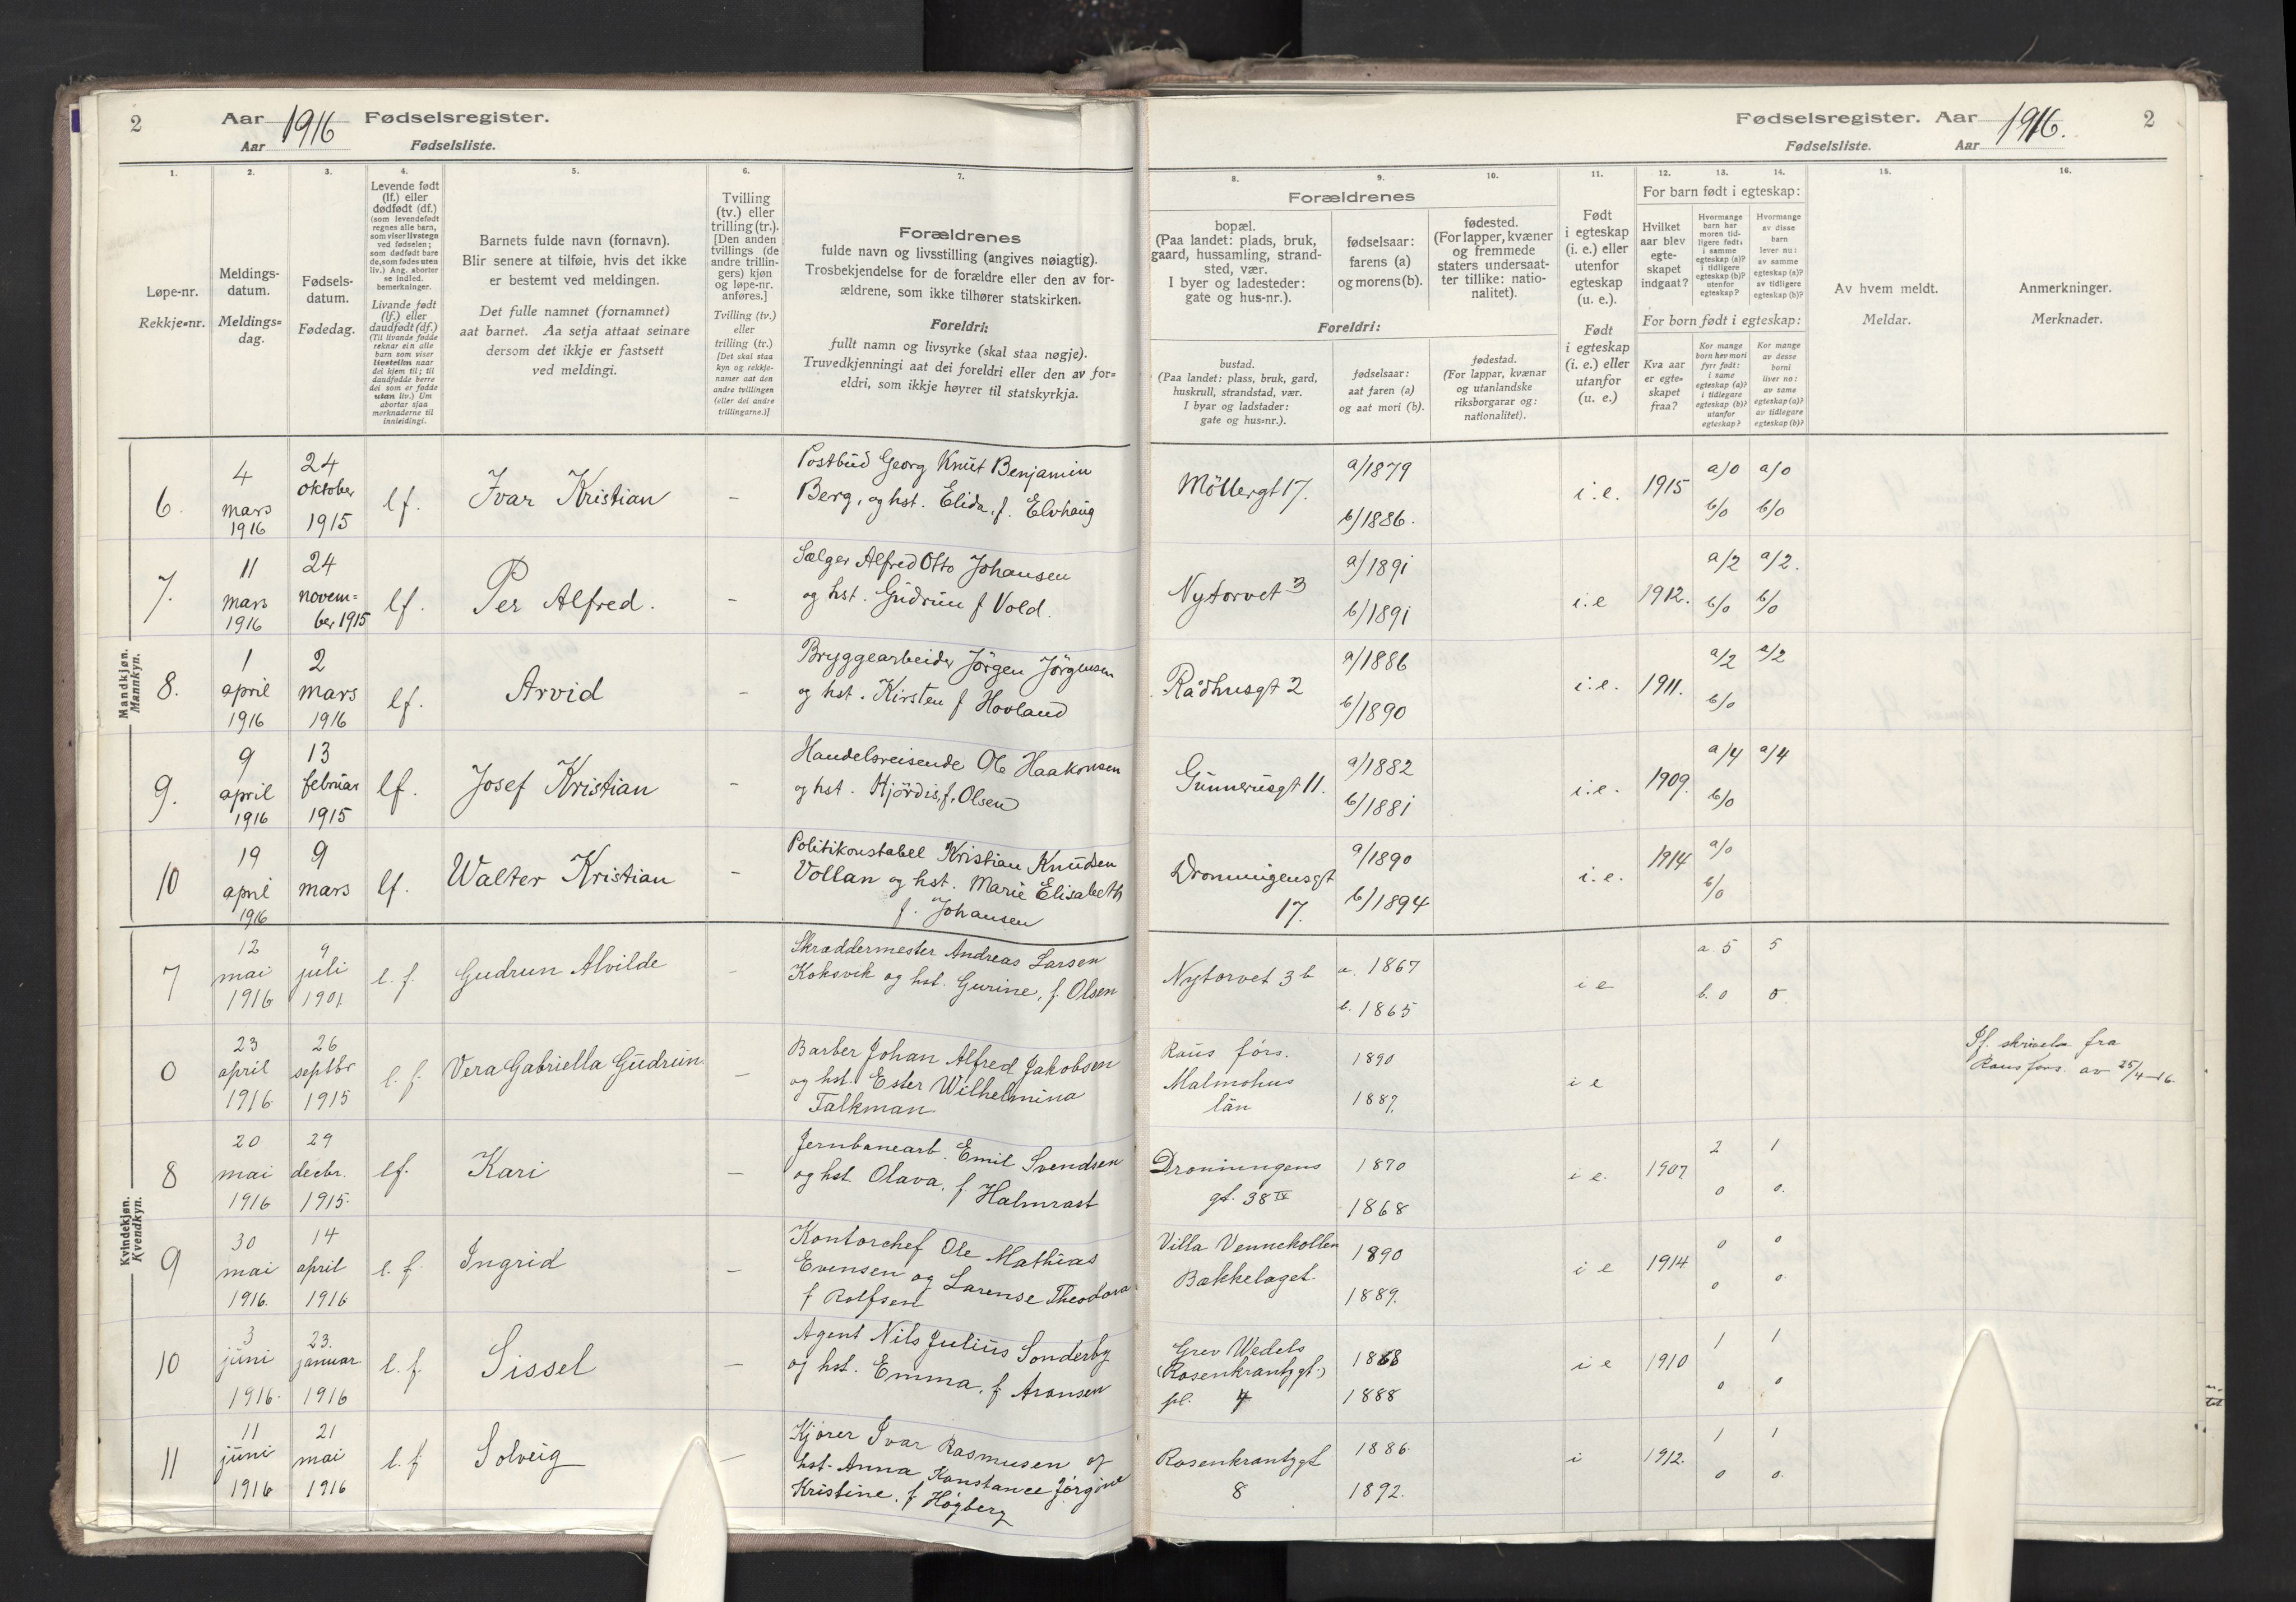 2
Aar 1916 Fødselsregister.
Aar Fødselsliste.
Fødselsregister. Aar 1916.
Fødselsliste. Aar
2
1.
Løpe-nr.
Rekkje-nr.
2.
Meldings-
datum.
Meldings-
dag.
3.
Fødsels-
datum.
Fødedag.
4.
Levende født
(lf.) eller
dødfødt (df.)
(som levendefødt
regnes alle barn,
som viser livstegn
ved fødselen;
som dødfødt bare
de, som fødes uten
liv.) Ang. aborter
se indled.
bemerkninger.
Livande født
(lf.) eller
daudfødt (df.)
(Til livande fødde
reknar ein alle
barn som viser
livsteikn naar
dei kjem til; til
daudfødde berre
dei som er fødde
utan liv.) Um
abortar sjaa
merknaderne til
innleidingi.
5.
Barnets fulde navn (fornavn).
Blir senere at tilføie, hvis det ikke
er bestemt ved meldingen.
Det fulle namnet (fornamnet)
aat barnet. Aa setja attaat seinare
dersom det ikkje er fastsett
ved meldingi.
6.
Tvilling
(tv.) eller
trilling (tr.).
[Den anden
tvillings (de
andre trillin-
gers) kjøn
og løpe-nr.
anføres.]
Tvilling (tv.)
eller
trilling (tr.)
[Det skal staa
kyn og rekkje-
numer aat den
andre tvillingen
(eller dei andre
trillingarne.)]
7.
Forældrenes
fulde navn og livsstilling (angives nøiagtig).
Trosbekjendelse for de forældre eller den av for-
ældrene, som ikke tilhører statskirken.
Foreldri:
fullt namn og livsyrke (skal staa nøgje).
Truvedkjenningi aat dei foreldri eller den av for-
eldri, som ikkje høyrer til statskyrkja.
8.
Forældrenes
bopæl.
(Paa landet: plads, bruk,
gaard, hussamling, strand-
sted, vær.
I byer og ladesteder:
gate og hus-nr.).
Foreldri:
bustad.
(Paa landet: plass, bruk, gard,
huskrull, strandstad, vær.
I byar og ladstader:
gate og hus-nr.).
9.
fødselsaar:
farens (a)
og morens (b).
fødselsaar:
aat faren (a)
og aat mori (b).
10.
fødested.
(For lapper, kvæner
og fremmede
staters undersaat-
ter tillike: natio-
nalitet).
fødestad.
(For lappar, kvænar
og utanlandske
riksborgarar og:
nationalitet).
11.
Født
i egteskap
(i. e.) eller
utenfor
egteskap
(u. e.).
Født
i egteskap
(i. e.) eller
utanfor
(u. e.)
12. 13. 14.
For barn født i egteskap:
Hvilket
aar blev
egte-
skapet
indgaat?
Hvormange
barn har
moren tid-
ligere født:
i samme
egteskap (a)?
i tidligere
egteskap (b)?
utenfor
egteskap?
Hvormange
av disse
barn
lever nu:
av samme
egteskap (a)?
av tidligere
egteskap (b)?
For born født i egteskap:
Kva aar
er egte-
skapet
fraa?
Kor mange
born hev mori
fyrr født:
i same
egteskap (a)?
i tidlegare
egteskap (b)?
utanfor
egteskap?
Kor mange
av desse
borni
liver no:
av same
egteskap (a)?
av tidlegare
egteskap (b)?
15.
Av hvem meldt.
Meldar.
16.
Anmerkninger.
Merknader.
Mandkjøn.
Mannkyn.
6. 4 mars 1916 24 oktober 1915 lf. Ivar Kristian –
Postbud Georg Knut Benjamin
Berg, og hst. Elida, f. Elvhaug
Möllergt 17. a/1879 b/1886. i.e. 1915 a/0 b/0 a/0 b/0
7. 11 mars 1916 24 novem-
ber 1915 lf. Per Alfred. –
Sælger Alfred Otto Johansen
og hst. Gudrun f Vold.
Nytorvet 3 a/1891 b/1891 i.e 1912. a/2 b/0 a/2. b/0
8. 1 april 1916 2 mars 1916 lf. Arvid –
Bryggearbeider Jörgen Jörgensen
og hst. Kirsten f Hovland
Rådhusgt 2 a/1886 b/1890 i.e. 1911. a/2 b/0 a/2
9. 9 april 1916 13 februar 1915 lf. Josef Kristian –
Handelsreisende Ole Haakonsen
og hst. Hjördis, f. Olsen
Gunnerusgt 11. a/1882 b/1881 i.e. 1909. a/4 b/0 a/4
10 19 april 1916 9 mars lf. Walter Kristian –
Politikonstabel Kristian Knudsen
Vollan og hst. Marie Elisabeth
f. Johansen
Dronningensgt
17. a/1890 b/1894 i.e. 1914 a/0 b/0
Kvindekjøn.
Kvendkyn.
7 12 mai 1916 9 juli 1901 l. f. Gudrun Alvilde –
Skræddermester Andreas Larsen
Koksvik og hst. Gurine, f. Olsen
Nytorvet 3 b a. 1867 b. 1865 i e a. 5 b. 0 5 0
0 23 april 1916 26 septbr 1915 l. f. Vera Gabriella Gudrun. –
Barber Johan Alfred Jakobsen
og hst. Ester Wilhelmina
Talkman.
Raus förs.
Malmöhus
län 1890 1887. i e
Jf. skrivelse fra
Raus förs. av 25/4–16.
8 20 mai 1916 29 decbr. 1915. lf. Kari –
Jernbanearb. Emil Svendsen
og hst. Olava, f Halmrast
Dronningens
gt. 38 IV 1870 1868 i e. 1907 2 0 1 0.
9 30 mai 1916. 14 april 1916 l. f. Ingrid –
Kontorchef Ole Mathias
Evensen og Larense Theodora
f Rolfsen
Villa Vennekollen
Bækkelaget. 1890 1889. i e 1914 0 0 0 0
10 3 juni 1916. 23. januar 1916 l. f. Sissel –
Agent Nils Julius Sonderby
og hst. Emma, f. Aronsen
Grev Wedels
(Rosenkrantzgt.)
pl. 4 1868 1888 i e 1910 1 0 1 0
11 11 juni 1916 21 mai 1916 l. f. Solveig –
Kjører Ivar Rasmusen og
hst. Anna Konstance Jørgine
Kristine, f Høgberg
Rosenkrantzgt
8 1886. 1892. i 1912. 1 0 1 0.